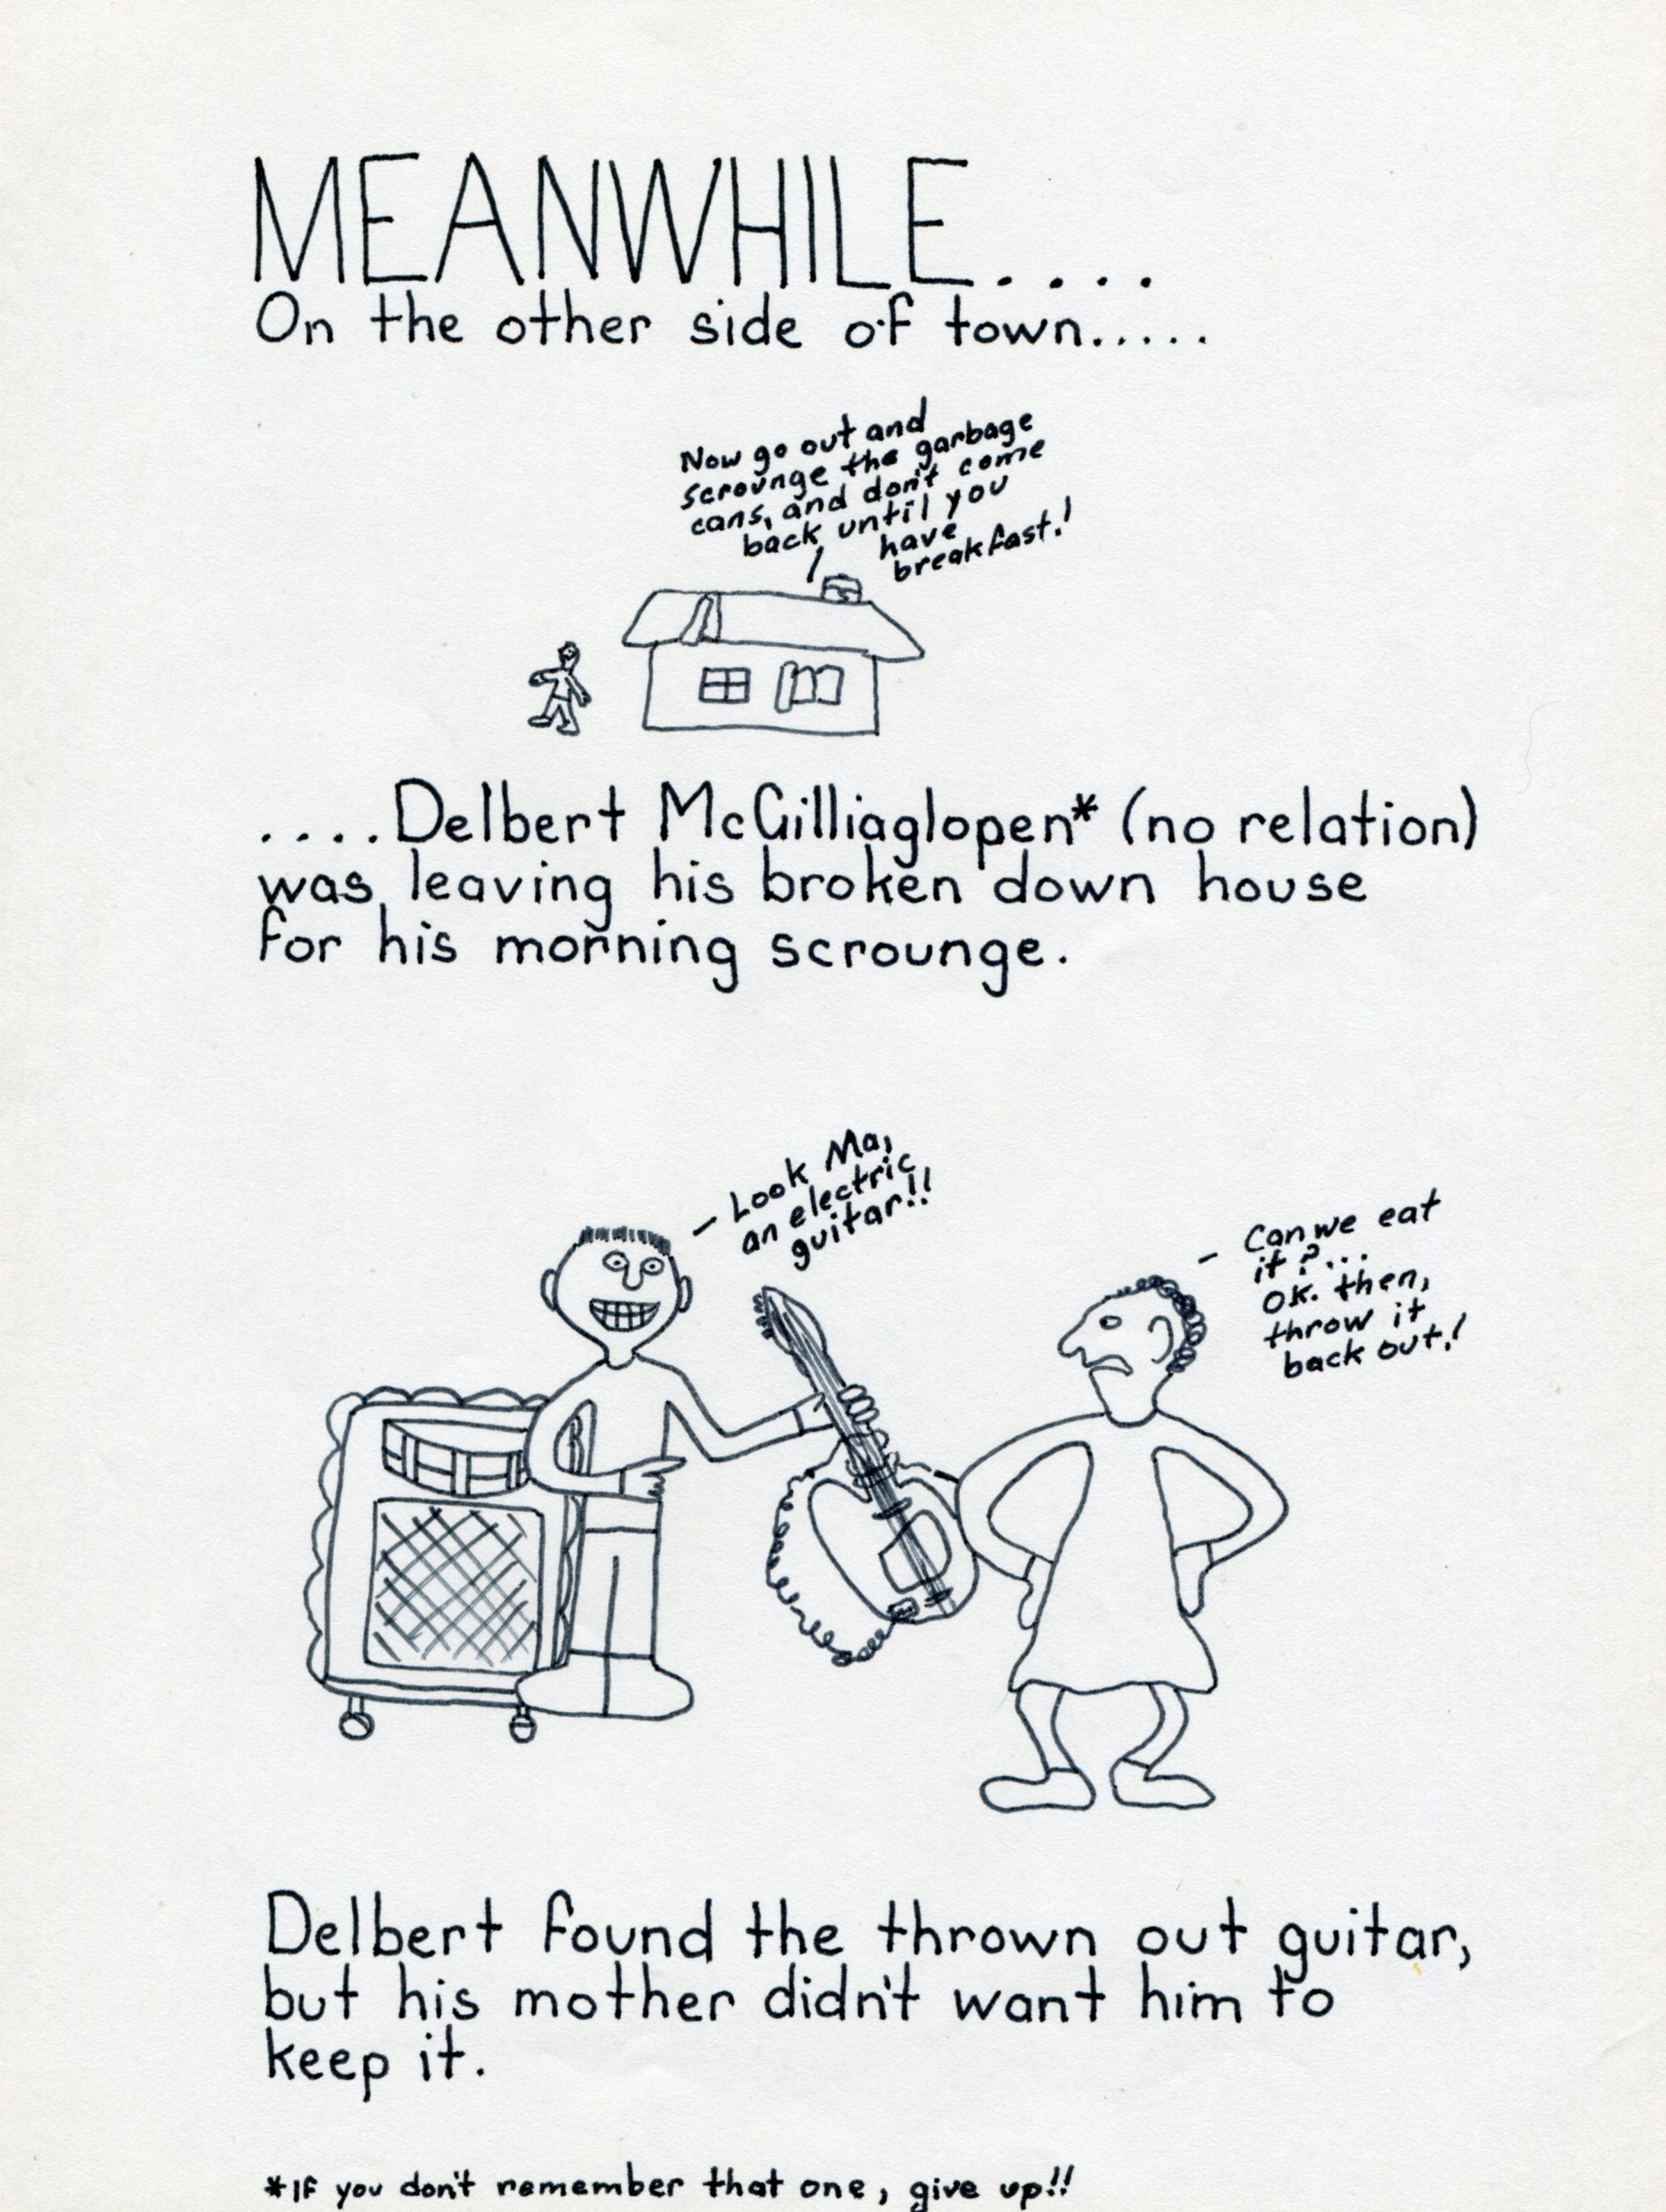 MEANWHILE....
On the other side of town.....
Now go out and
scrounge the garbage
cans, and don't come
back until you
have
breakfast!
....Delbert McGilliaglopen* (no relation)
was leaving his broken down house
for his morning scrounge.
Look Ma,
an electric
guitar!!
Can we eat
it?...
OK. then,
throw it
back out!
Delbert found the thrown out guitar,
but his mother didn't want him to
keep it.
*If you don't remember that one, give up!!